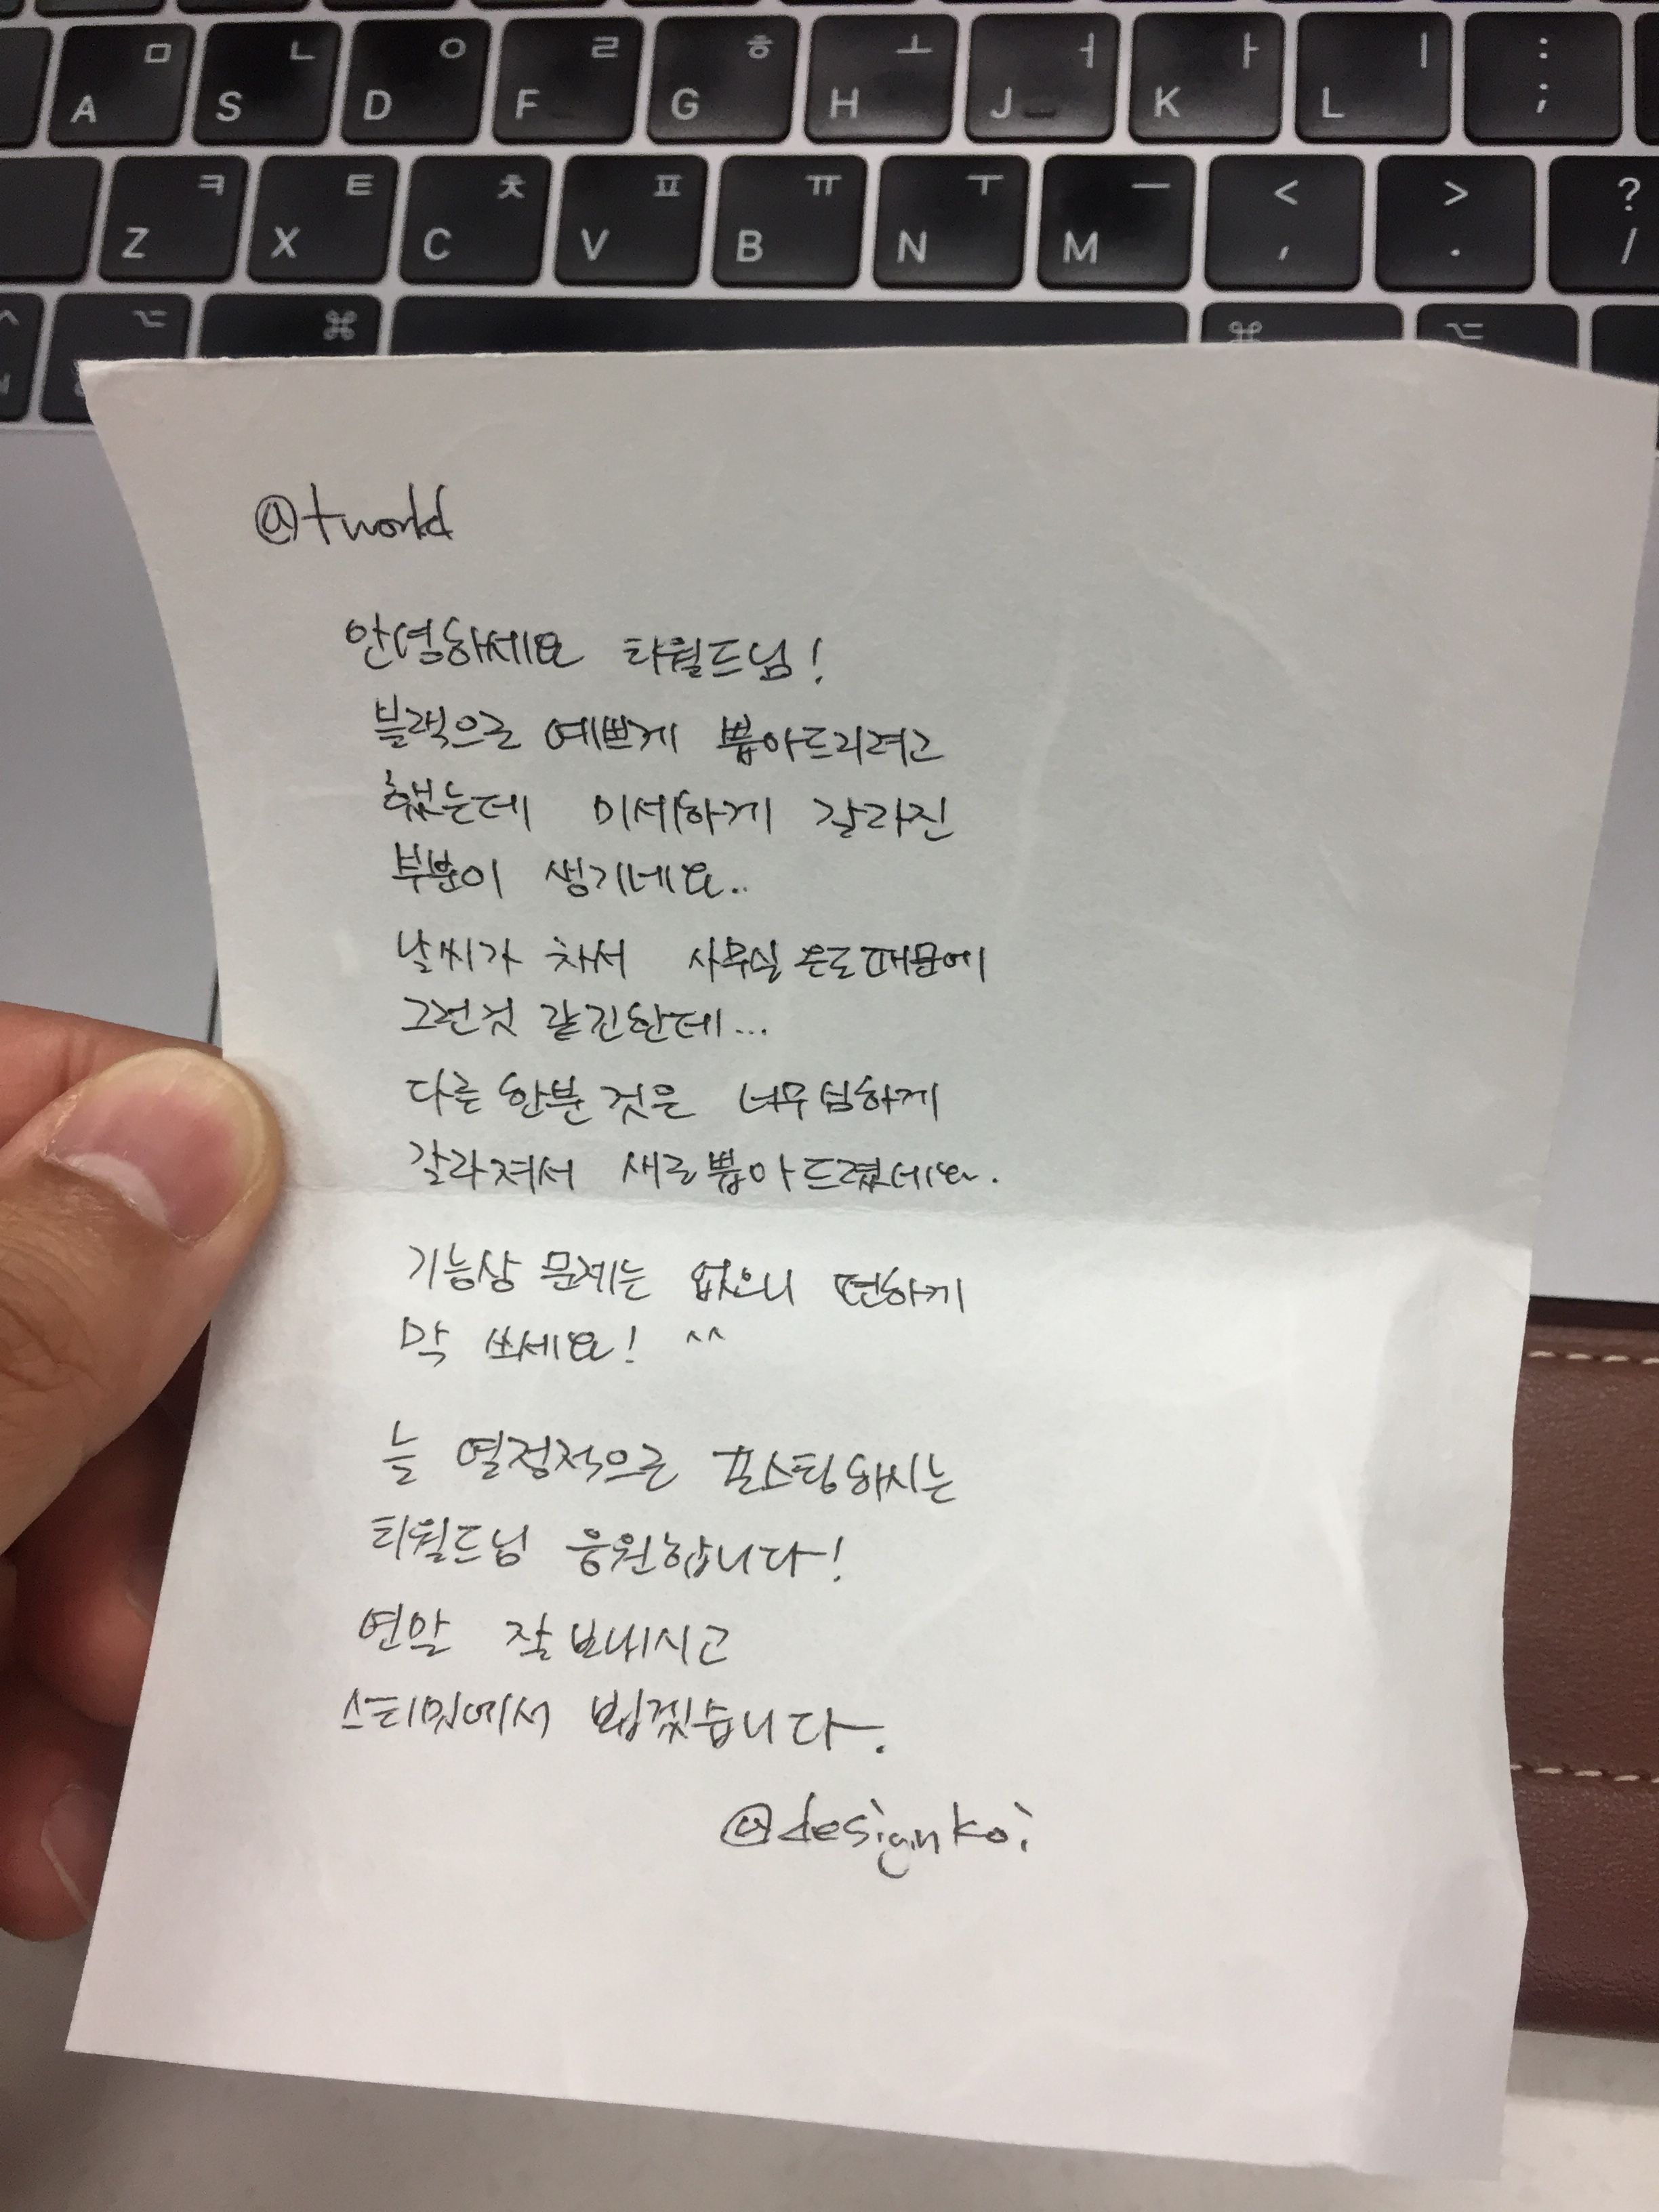 A ㅁ S ㄴ D ㅇ F ㄹ G ㅎ H ㅗ J ㅓ K ㅏ L ㅣ : ;
Z ㅋ X ㅌ C ㅊ V ㅍ B ㅠ N ㅜ M ㅡ < , > . ? /
⌥ ⌘ ⌘ ⌥
@tworld
안녕하세요 티월드님!
블랙으로 예쁘게 뽑아드리려고
했는데 미세하게 갈라진
부분이 생기네요..
날씨가 차서 사무실 온도때문에
그런것 같긴한데...
다른 한분 것은 너무심하게
갈라져서 새로뽑아드렸네요.
기능상 문제는 없으니 편하게
막 쓰세요! ^^
늘 열정적으로 포스팅하시는
티월드님 응원합니다!
연말 잘보내시고
스티밋에서 뵙겠습니다.
@designkoi